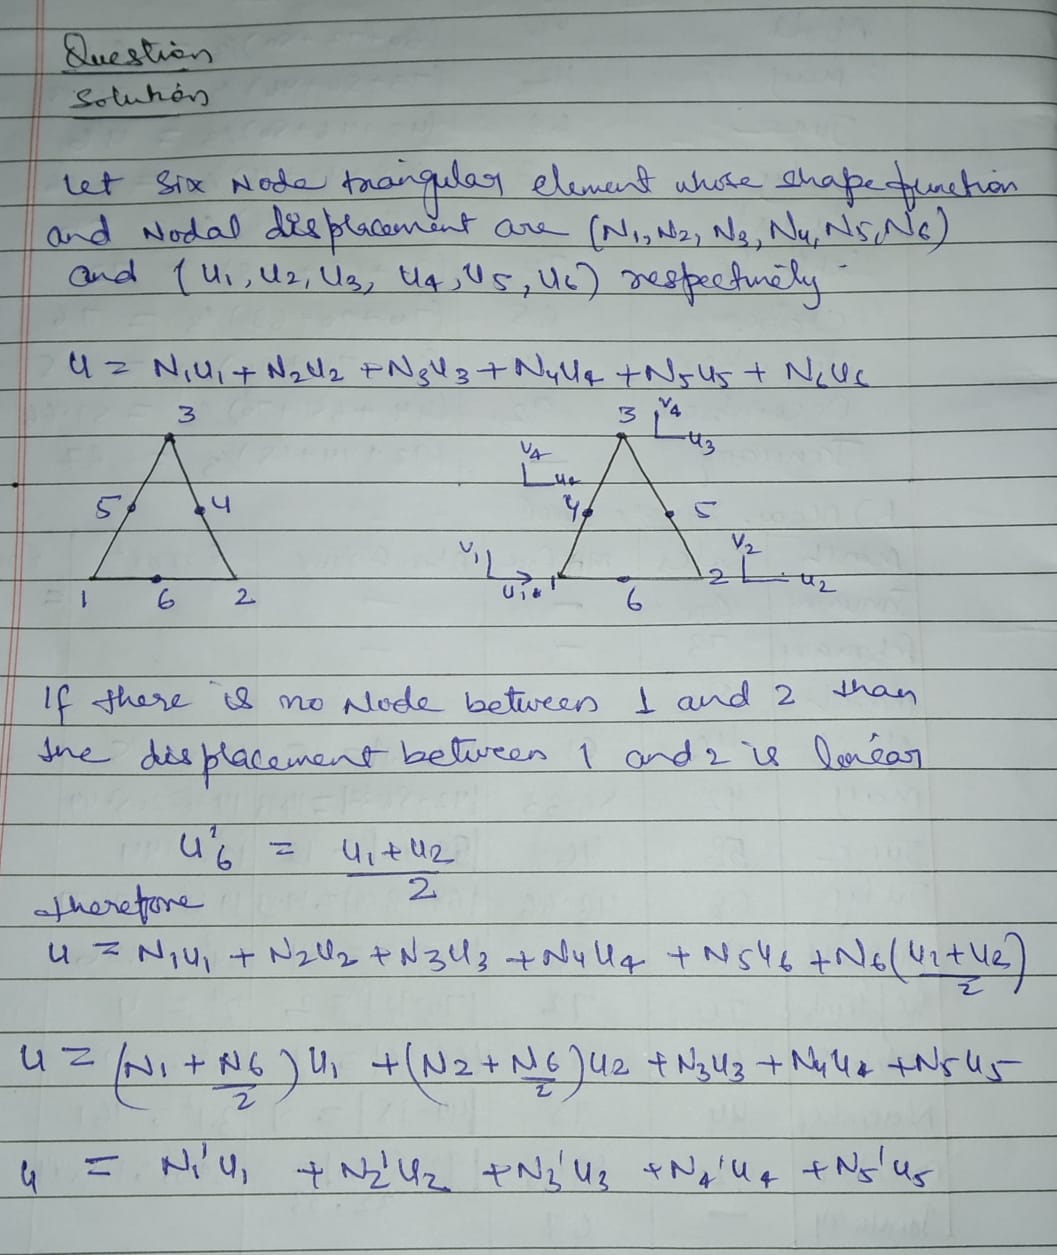 Question
Solution
Let Six Node triangular element whose shape function
and Nodal displacement are (N1, N2, N3, N4, N5, N6)
and (u1, u2, u3, u4, u5, u6) respectively
u = N1u1 + N2u2 + N3u3 + N4u4 + N5u5 + N6u6
3
5 4
1 6 2
3 V4 u3
V4 u4
4 5
V1 u1 1
2 V2 u2
6
If there is no Node between 1 and 2 than
the displacement between 1 and 2 is linear
u'6 = (u1+u2)/2
therefore
u = N1u1 + N2u2 + N3u3 + N4u4 + N5u6 + N6((u1+u2)/2)
u = (N1 + N6/2)u1 + (N2 + N6/2)u2 + N3u3 + N4u4 + N5u5
u = N1'u1 + N2'u2 + N3'u3 + N4'u4 + N5'u5